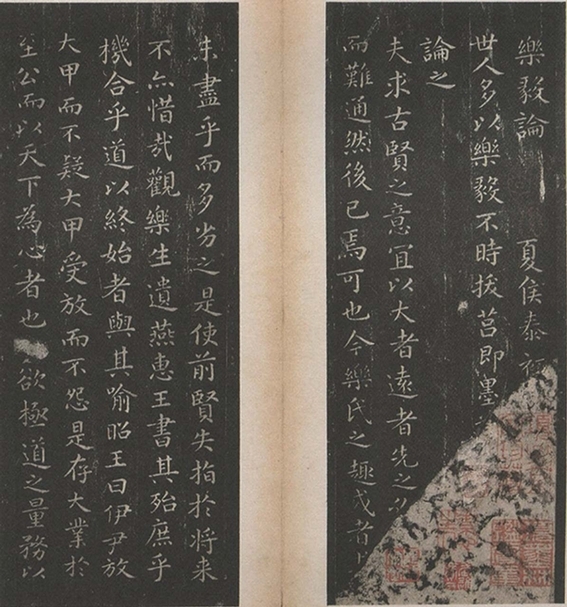 樂毅論 夏侯泰初
世人多以樂毅不時拔莒即墨
論之
夫求古賢之意宜以大者遠者先之必
而難通然後已焉可也今樂氏之趣或者
未盡乎而多劣之是使前賢失指於將来
不亦惜哉觀樂生遺燕惠王書其殆庶乎
機合乎道以終始者與其喻昭王曰伊尹放
大甲而不疑大甲受放而不怨是存大業於
至公而以天下為心者也欲極道之量務以